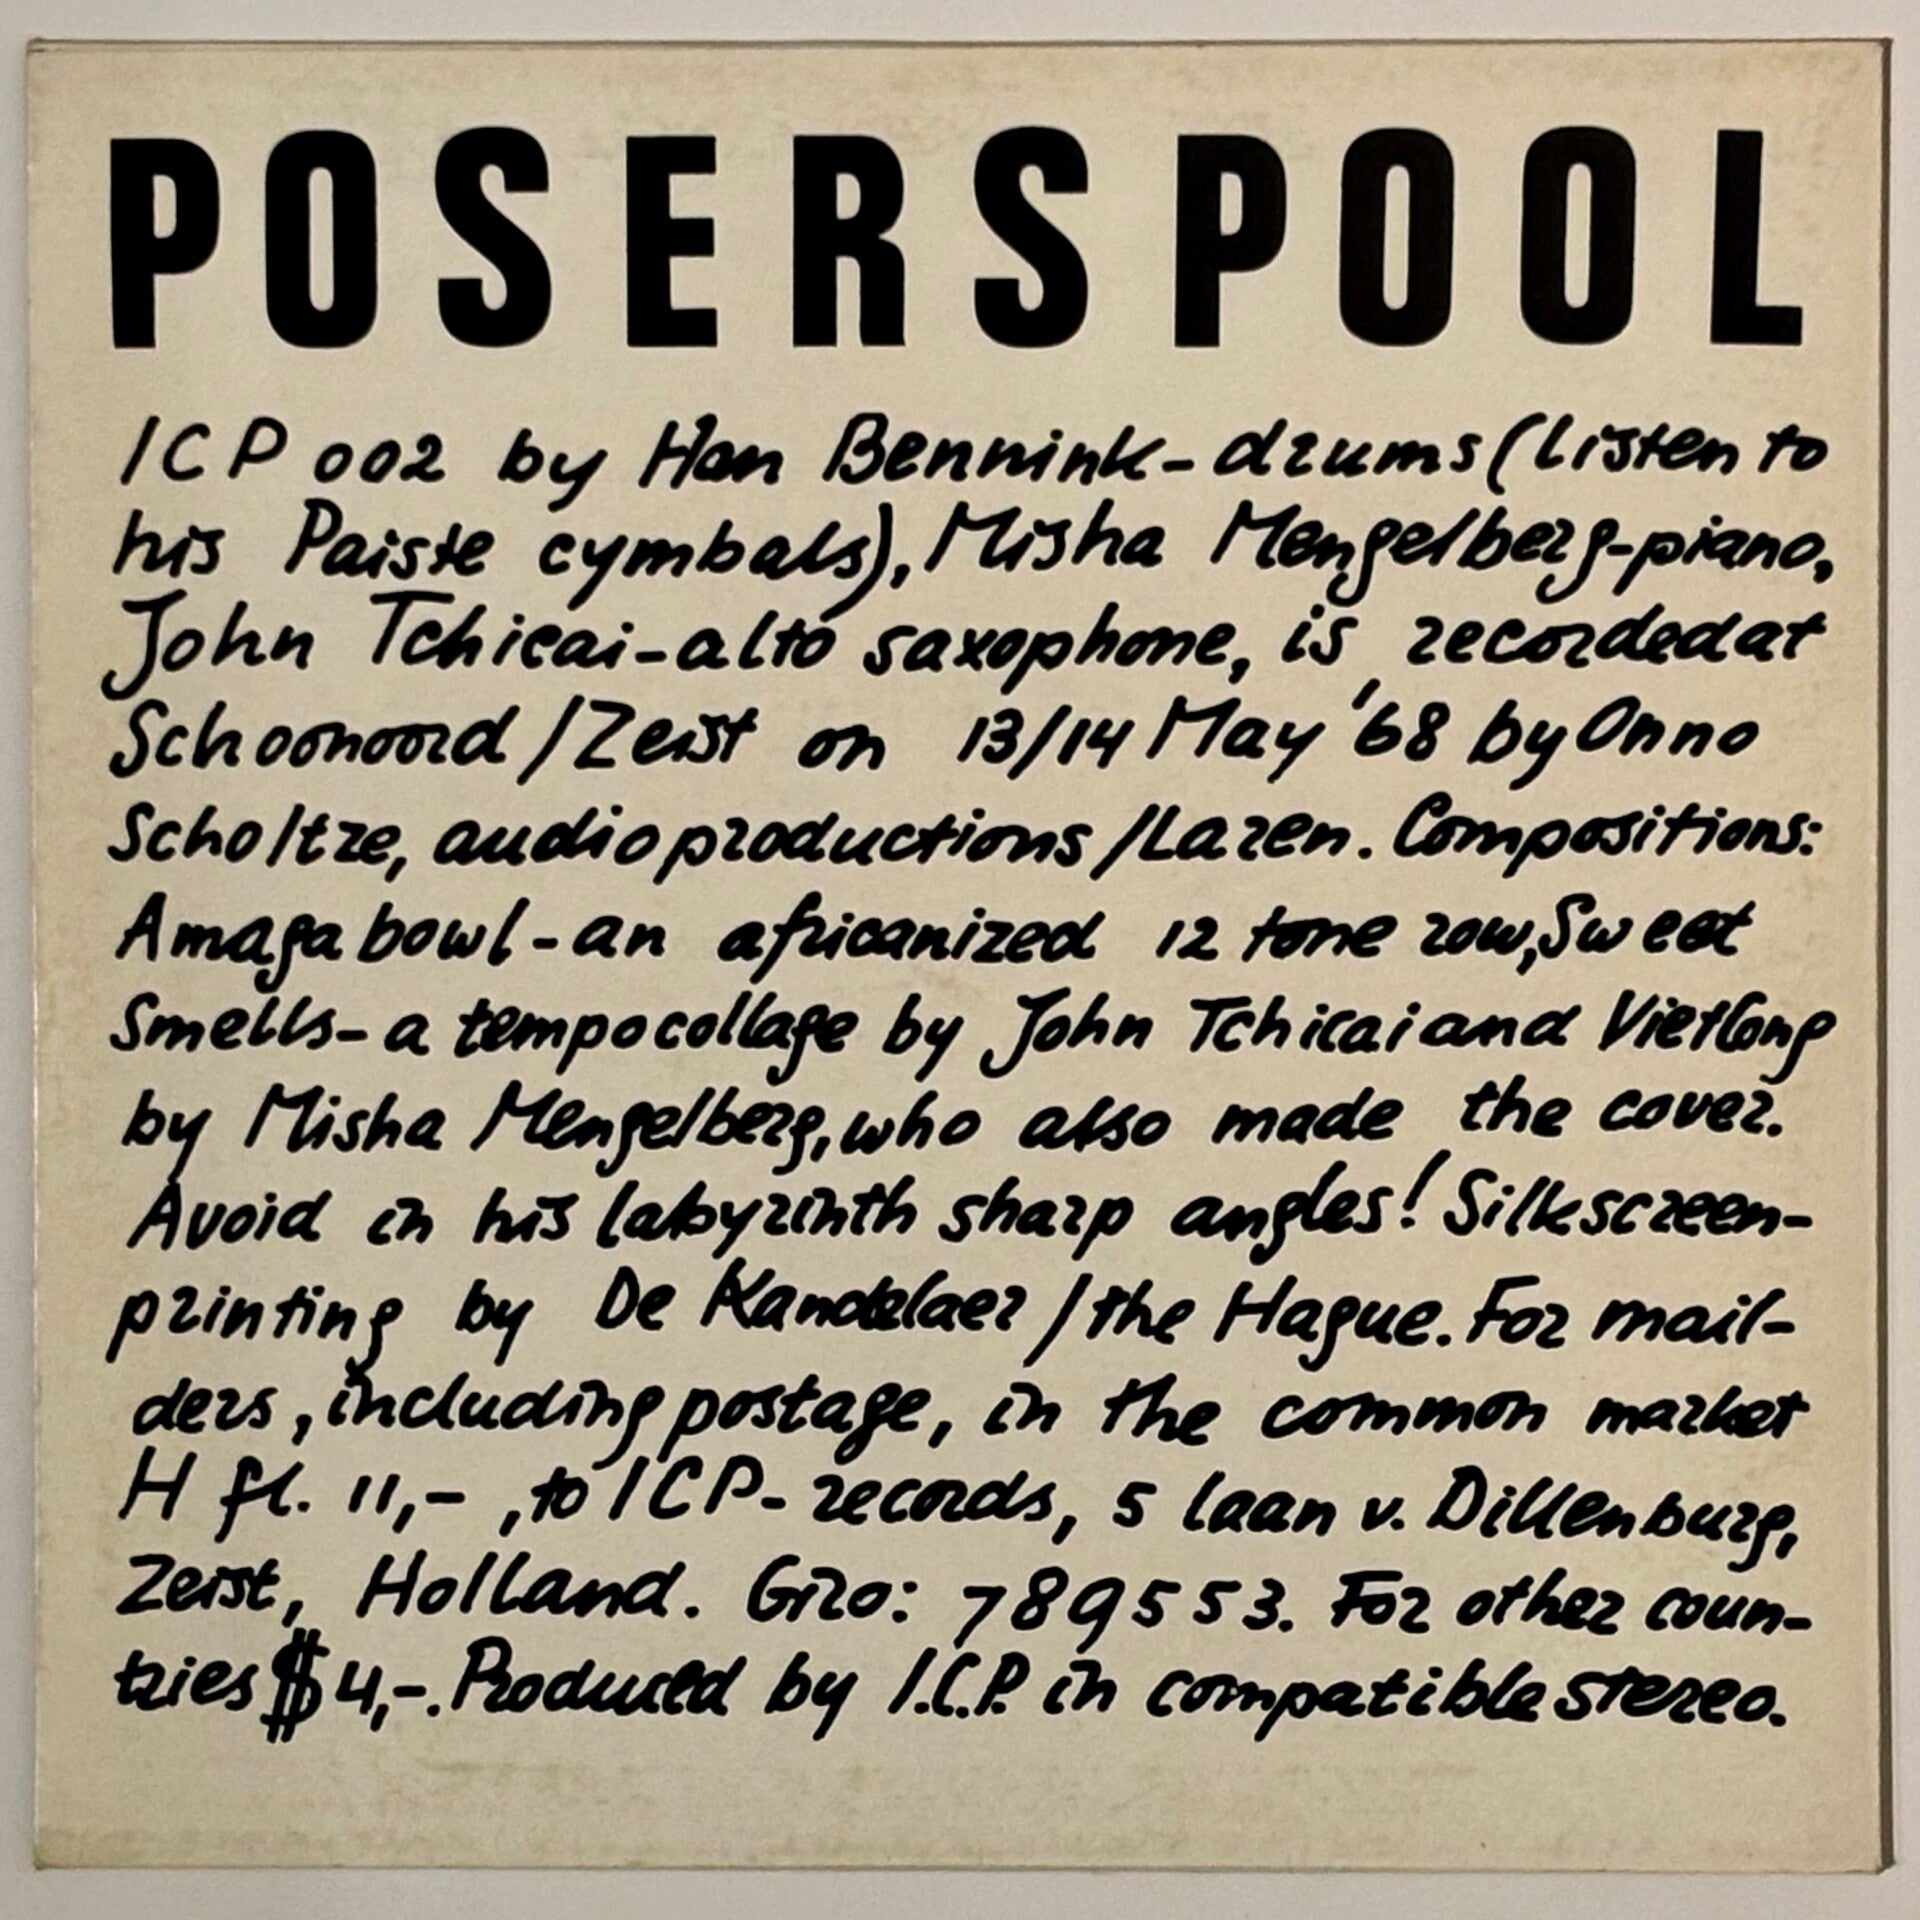 POSERSPOOL
ICP 002 by Han Bennink - drums (listen to
his Paiste cymbals), Misha Mengelberg-piano,
John Tchicai-alto saxophone, is recorded at
Schoonoord/Zeist on 13/14 May '68 by Onno
Scholtze, audioproductions/Laren. Compositions:
Amagabowl-an africanized 12 tone row, Sweet
Smells-a tempocollage by John Tchicai and VietCong
by Misha Mengelberg, who also made the cover.
Avoid in his labyrinth sharp angles! Silkscreen-
printing by De Kandelaer/the Hague. For mail-
ders, including postage, in the common market
H fl. 11,-, to ICP-records, 5 laan v. Dillenburg,
Zeist, Holland. Giro: 789553. For other coun-
tries $4,-. Produced by I.C.P. in compatible stereo.